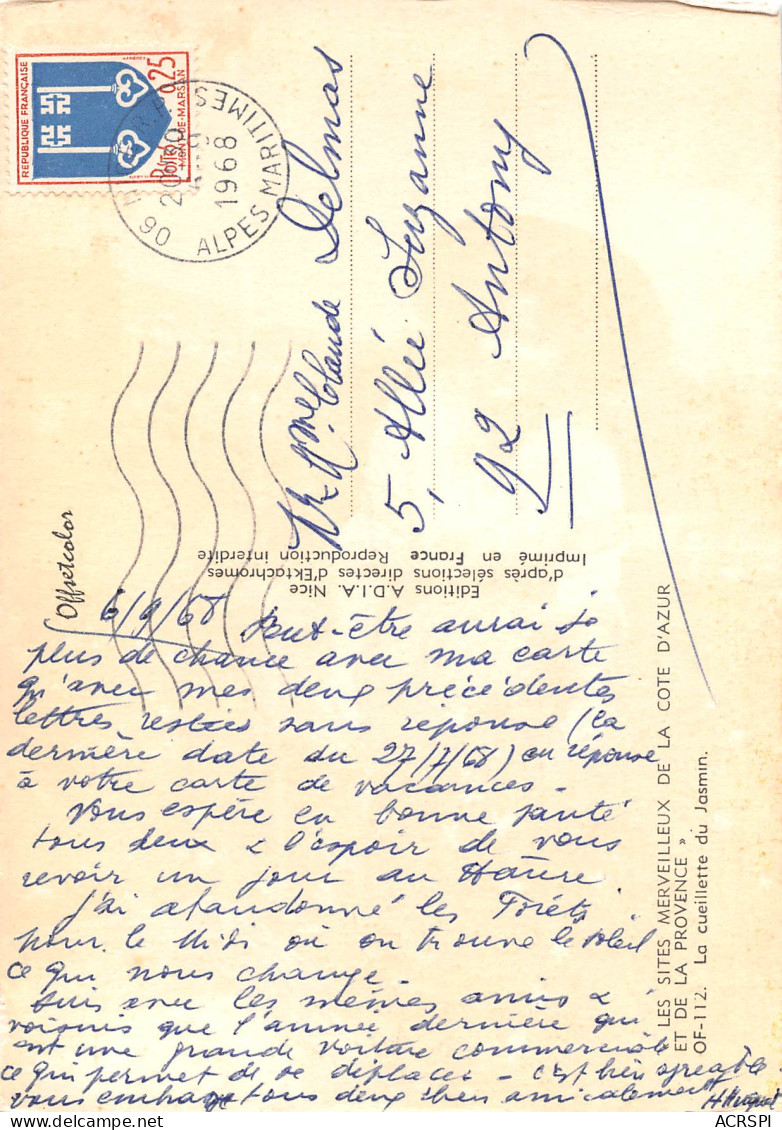 REPUBLIQUE FRANÇAISE
0,25
MONT-DE-MARSAN
1968
06 ALPES MARITIMES
Mr Mme Claude Delmas
5, Allée Suzanne
92 Antony
Offsetcolor
Editions A.D.I.A. Nice
d'après sélections directes d'Ektachromes
Imprimé en France Reproduction interdite
« LES SITES MERVEILLEUX DE LA COTE D'AZUR
ET DE LA PROVENCE »
OF-112. La cueillette du Jasmin.
6/9/68 Peut-être aurai je
plus de chance avec ma carte
qu'avec mes deux précédentes
lettres restées sans réponse (la
dernière date du 27/7/68) en réponse
à votre carte de vacances -
Vous espère en bonne santé
tous deux & l'espoir de vous
revoir un jour au Hâvre.
J'ai abandonné les Forêts
pour le Midi où on trouve le soleil
ce qui nous change -
Suis avec les mêmes amis &
voisins que l'année dernière qui
ont une grande voiture commerciale
ce qui permet de se déplacer - c'est bien agréable -
vous embrasse tous deux bien amicalement